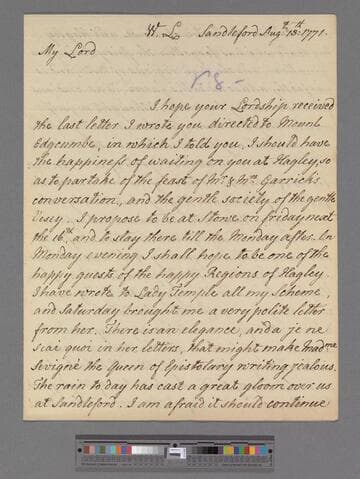 W. L. Sandleford Augst 13th 1771.
My Lord
I hope your Lordship received
the last letter I wrote you directed to Mount
Edgcumbe, in which I told you, I should have
the happiness of waiting on you at Hagley, so
as to partake of the feast of Mr & Mrs Garricks
conversation, and the gentle society of the gentle
Vesey. I propose to be at Stowe on friday next
the 16th, and to stay there till the Monday after. On
Monday evening I shall hope to be one of the
happy guests of the happy Regions of Hagley.
I have wrote to Lady Temple all my scheme,
and Saturday brought me a very polite letter
from her. There is an elegance, and a je ne
scai quoi in her letters, that might make Madme
Sevigné the Queen of Epistolary writing jealous.
The rain to day has cast a great gloom over us
at Sandleford. I am afraid it should continue